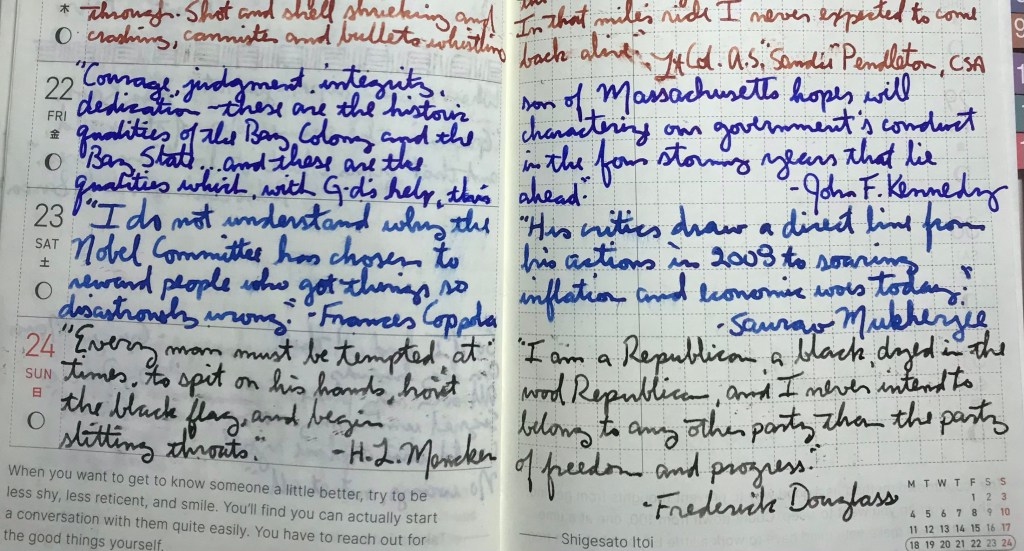 木
through. Shot and shell shrieking and
crashing, cannister and bullets whistling
22
FRI
金
"Courage, judgment, integrity,
dedication—these are the historic
qualities of the Bay Colony and the
Bay State...and these are the
qualities which, with G-d's help, this
23
SAT
土
"I do not understand why the
Nobel Committee has chosen to
reward people who got things so
disastrously wrong." -Frances Coppola
24
SUN
日
"Every man must be tempted at
times, to spit on his hands, hoist
the black flag, and begin
slitting throats."
-H.L. Mencken
When you want to get to know someone a little better, try to be
less shy, less reticent, and smile. You'll find you can actually start
a conversation with them quite easily. You have to reach out for
the good things yourself.
In that miles ride I never expected to come
back alive." -Lt Col. A.S. "Sandie" Pendleton, CSA
son of Massachusetts hopes will
characterize our government's conduct
in the four stormy years that lie
ahead."
-John F. Kennedy
"His critics draw a direct line from
his actions in 2009 to soaring
inflation and economic woes today."
-Saurav Mukherjee
"I am a Republican, a black dyed in the
wool Republican, and I never intend to
belong to any other party than the party
of freedom and progress."
-Frederick Douglass
— Shigesato Itoi
M T W T F S S
1 2 3
4 5 6 7 8 9 10
11 12 13 14 15 16 17
18 19 20 21 22 23 24
9
1
1
1